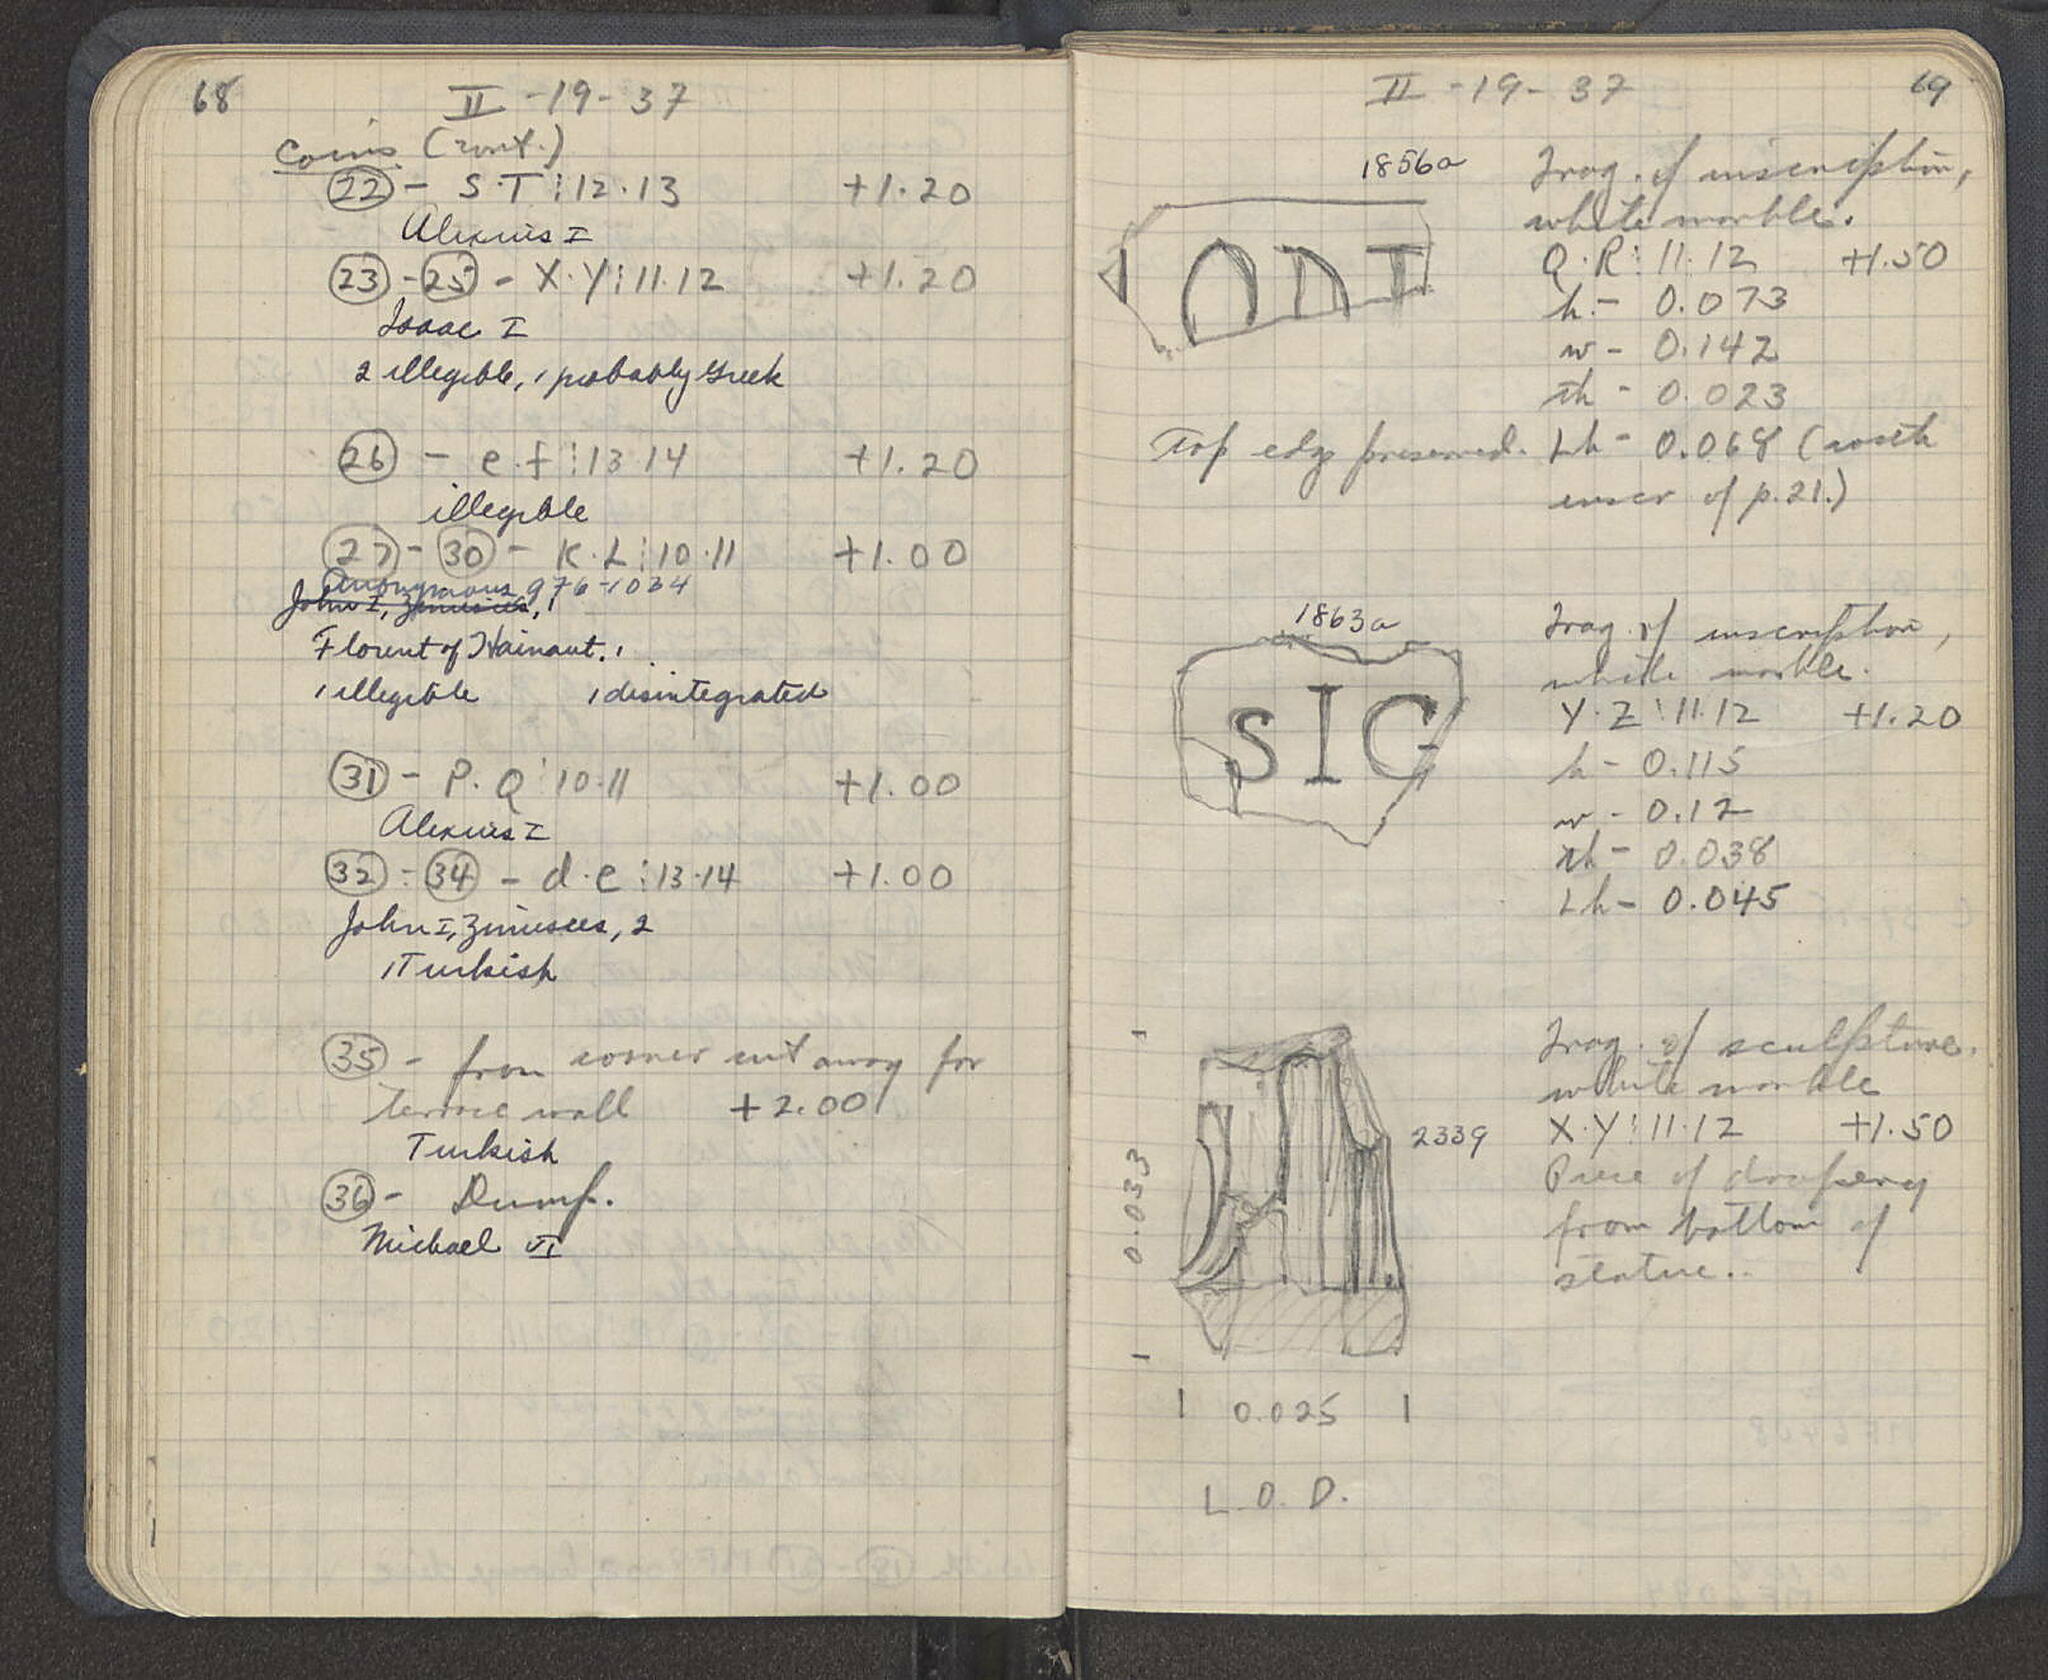 68
II - 19 - 37
Coins (cont.)
22 - S·T : 12·13 +1.20
Alexius I
23 - 25 - X·Y : 11·12 +1.20
Isaac I
2 illegible, 1 probably Greek
26 - e·f : 13·14 +1.20
illegible
27 - 30 - K·L : 10·11 +1.00
Anonymous 976-1034
John I, Zimisces, 1
Florent of Hainaut, 1
1 illegible 1 disintegrated
31 - P·Q : 10·11 +1.00
Alexius I
32 - 34 - d·e : 13·14 +1.00
John I, Zimisces, 2
1 Turkish
35 - from corner cut away for
terrace wall +2.00
Turkish
36 - Dump.
Michael VI
II - 19 - 37
69
1856a
ODI
Frag. of inscription,
white marble.
Q·R : 11·12 +1.50
h. - 0.073
w - 0.142
th - 0.023
Top edge preserved. Lh - 0.068 (with
inscr of p.21.)
1863a
SIC
Frag. of inscription,
white marble.
Y·Z : 11·12 +1.20
h - 0.115
w - 0.12
th - 0.038
Lh - 0.045
Frag. of sculpture.
white marble
2339
X·Y : 11·12 +1.50
Piece of drapery
from bottom of
statue.
0.033
0.025
L.O.D.